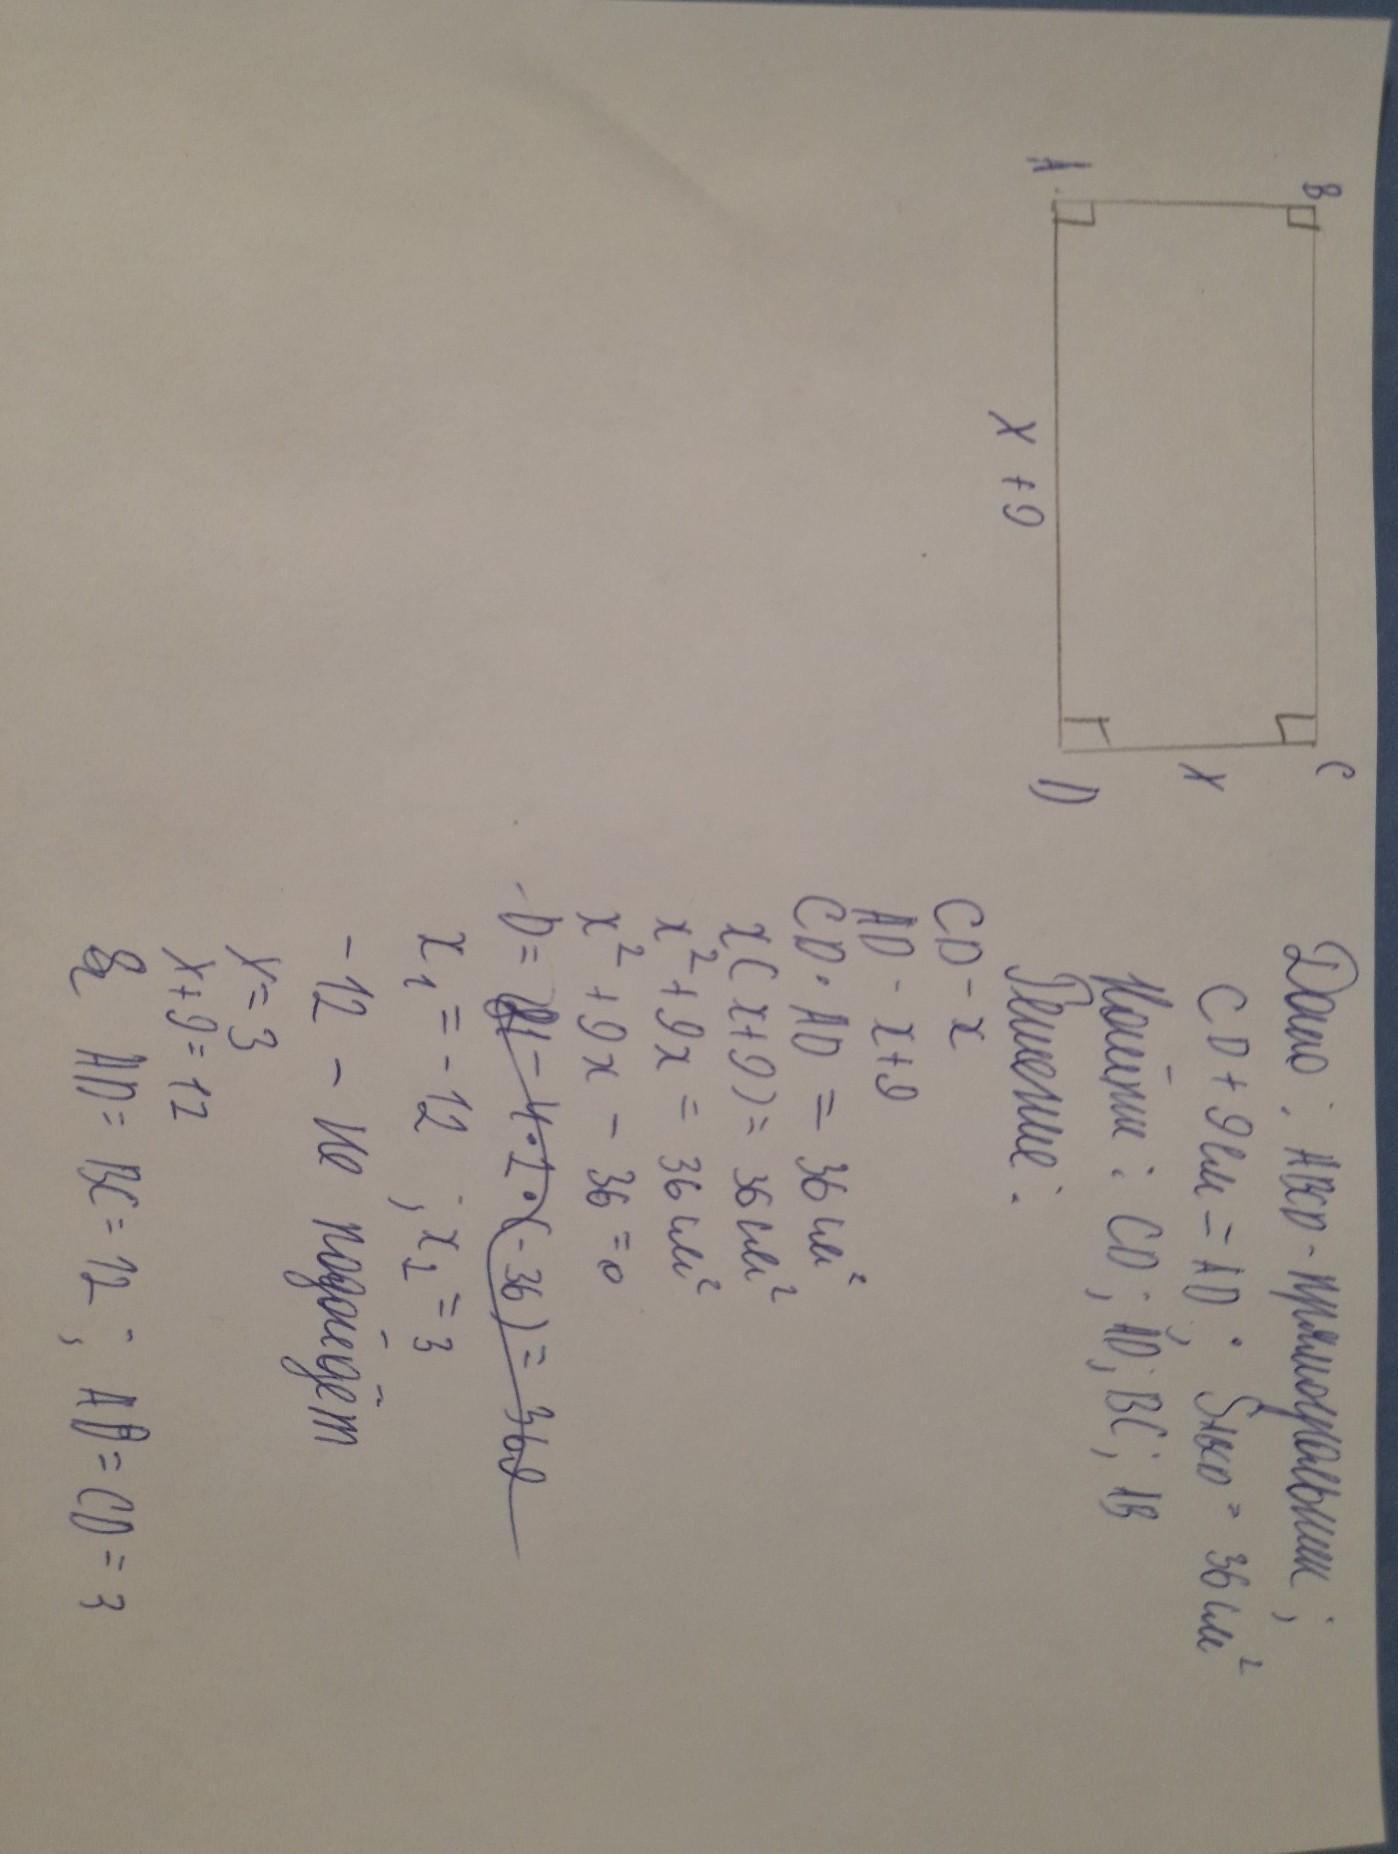 B
C
A
D
x
x + 9
Дано: ABCD - прямоугольник;
CD + 9 см = AD; SABCD = 36 см²
Найти: CD; AD; BC; AB
Решение:
CD - x
AD - x+9
CD · AD = 36 см²
x(x+9) = 36 см²
x² + 9x = 36 см²
x² + 9x - 36 = 0
D = 81 - 4·1·(-36) = 369
x₁ = -12 ; x₂ = 3
-12 - не подойдёт
x = 3
x+9 = 12
AD = BC = 12 ; AB = CD = 3